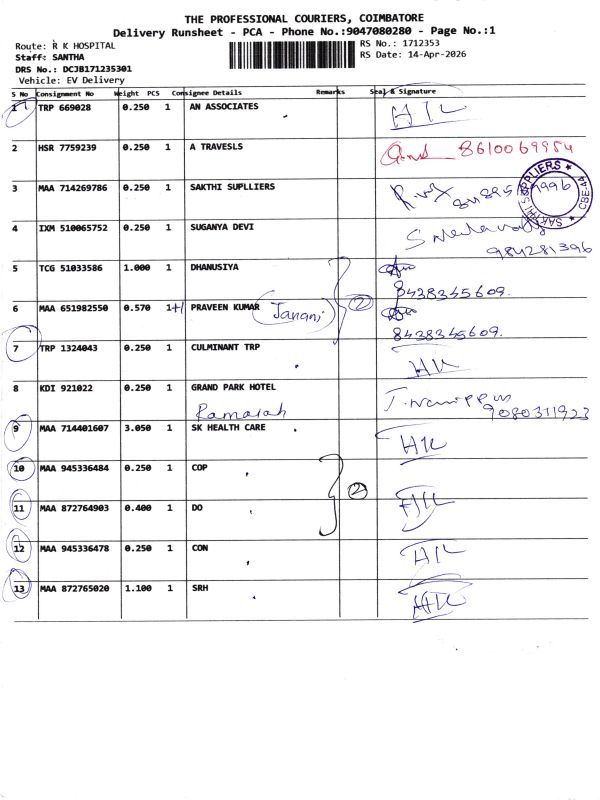 THE PROFESSIONAL COURIERS, COIMBATORE
Delivery Runsheet - PCA - Phone No.:9047080280 - Page No.:1
Route: R K HOSPITAL
RS No.: 1712353
Staff: SANTHA
RS Date: 14-Apr-2026
DRS No.: DCJB171235301
Vehicle: EV Delivery
S No Consignment No Weight PCS Consignee Details Remarks Seal & Signature
1 TRP 669028 0.250 1 AN ASSOCIATES
2 HSR 7759239 0.250 1 A TRAVESLS 8610069954
3 MAA 714269786 0.250 1 SAKTHI SUPLLIERS
SAKTHI SUPPLIERS CBE-44
4 IXM 510065752 0.250 1 SUGANYA DEVI
984281396
5 TCG 51033586 1.000 1 DHANUSIYA
8438345609.
6 MAA 651982550 0.570 1+1 PRAVEEN KUMAR Janani 2
8438345609.
7 TRP 1324043 0.250 1 CULMINANT TRP
8 KDI 921022 0.250 1 GRAND PARK HOTEL
Ramaiah 9080311923
9 MAA 714401607 3.050 1 SK HEALTH CARE
10 MAA 945336484 0.250 1 COP
2
11 MAA 872764903 0.400 1 DO
12 MAA 945336478 0.250 1 CON
13 MAA 872765020 1.100 1 SRH